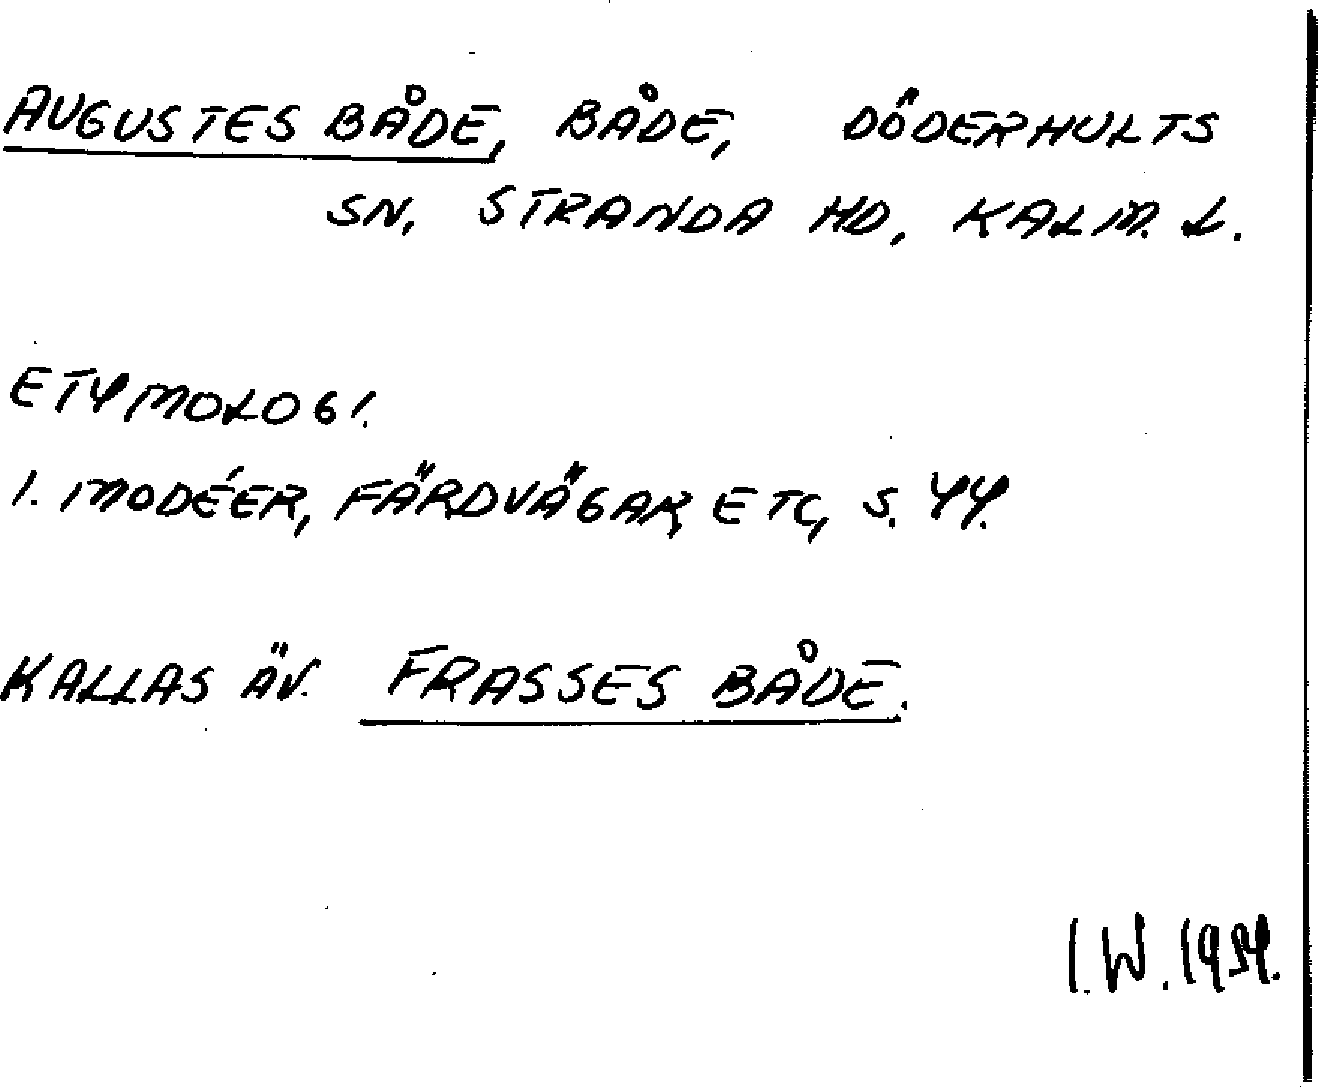 AUGUSTES BÅDE, BÅDE, DÖDERHULTS
SN, STRANDA HD, KALM. L.
ETYMOLOGI.
I. MODÉER, FÄRDVÄGAR ETC, S. 44.
KALLAS ÄV. FRASSES BÅDE.
I.W. 1954.